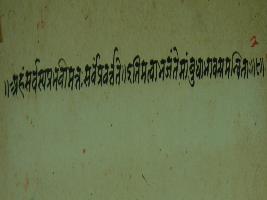 ॥अहंसर्वस्यप्रभवोमत्तःसर्वंप्रवर्त्तते॥इतिमत्वाभजंतेमांबुधाभावसमन्विताः॥८॥